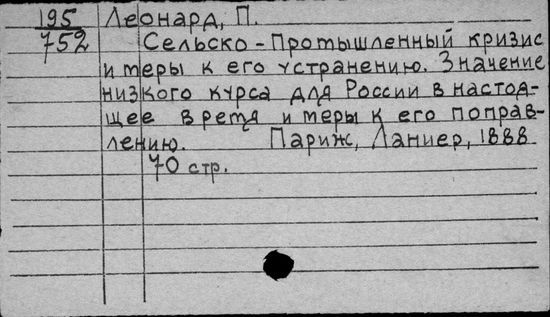 195 Леонард, П.
752 Сельско-Промышленный кризис
и меры к его устранению. Значение
низкого курса для России в настоя-
щее время и меры к его поправ-
лению. Париж, Ланиер, 1888
70 стр.